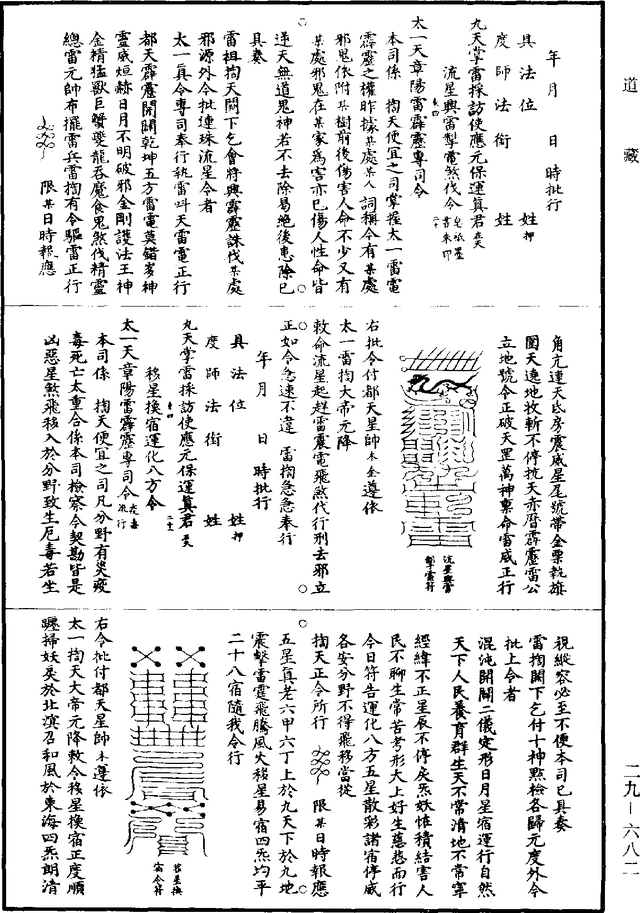 道藏
年　月　日　時批行
具法位　　姓　押
度師法銜　　姓
九天掌雷採訪使應元保運真君 在天
流星興雷掣電煞伐令
太一天章陽雷霹靂專司令
本司係　掏天便宜之司掌握太一雷電
霹靂之權昨據某處某人詞稱今有某處
邪鬼依附某樹前後傷害人命不少又有
某處邪鬼在某家為害亦已傷人性命皆
逆天無道鬼神若不去除易絕後患除已
具奏
雷祖掏天闕下乞會將興霹靂誅伐某處
邪源外令批連珠流星令者
太一真令專司奉行執雷叫天雷電正行
都天霹靂開闢乾坤五方雷電莫錯岁神
靈威烜赫日月不明破邪金剛護法王神
金精猛獸巨蟹夔龍吞魔食鬼煞伐精靈
總雷元帥布擺雷兵雷掏有令驅雷正行
限某日時報應
角亢達天氐房震威星尾號帶金栗執旗
圍天遶地牧斬不停抗天亦曆霹靂雷公
立地號令正破天罡萬神稟命雷威正行
流星興雷
掣雷符
右批令付都天星帥 某 准遵依
太一雷掏大帝元降
救命流星起趕雷震電飛煞代行刑去邪立
正如令急速不違　雷掏急急奉行
年　月　日　時批行
具法位　　姓　押
度師法銜　　姓
九天掌雷採訪使應元保運真君 在天
移星換宿運化八方令
太一天章陽雷霹靂專司令
本司係　掏天便宜之司凡分野有災疫
毒死亡太重合係本司檢察今契勘皆是
凶惡星煞飛移入於分野致生厄毒若生
視縱容必至不便本司已具奏
雷掏闕下乞付十神點檢各歸元度外令
批上令者
混沌開闢二儀定形日月星宿運行自然
天下人民養育群生天不常清地不常寧
經緯不正星辰不停戾炁妖惟積結害人
民不聊生常苦考形大上好生慈悲而行
今日符告運化八方五星散彩諸宿停威
各安分野不得飛移當從
掏天正令所行　限某日時報應
五星真老六甲六丁上於九天下於九地
震擊雷霆飛騰風火移星易宿四炁均平
二十八宿隨我令行
移星換
宿令符
右令批付都天星帥 某 遵依
太一掏天大帝元降敕令移星換宿正度順
躔掃妖戾於北溟召和風於東海四炁朗清
二九—六八二